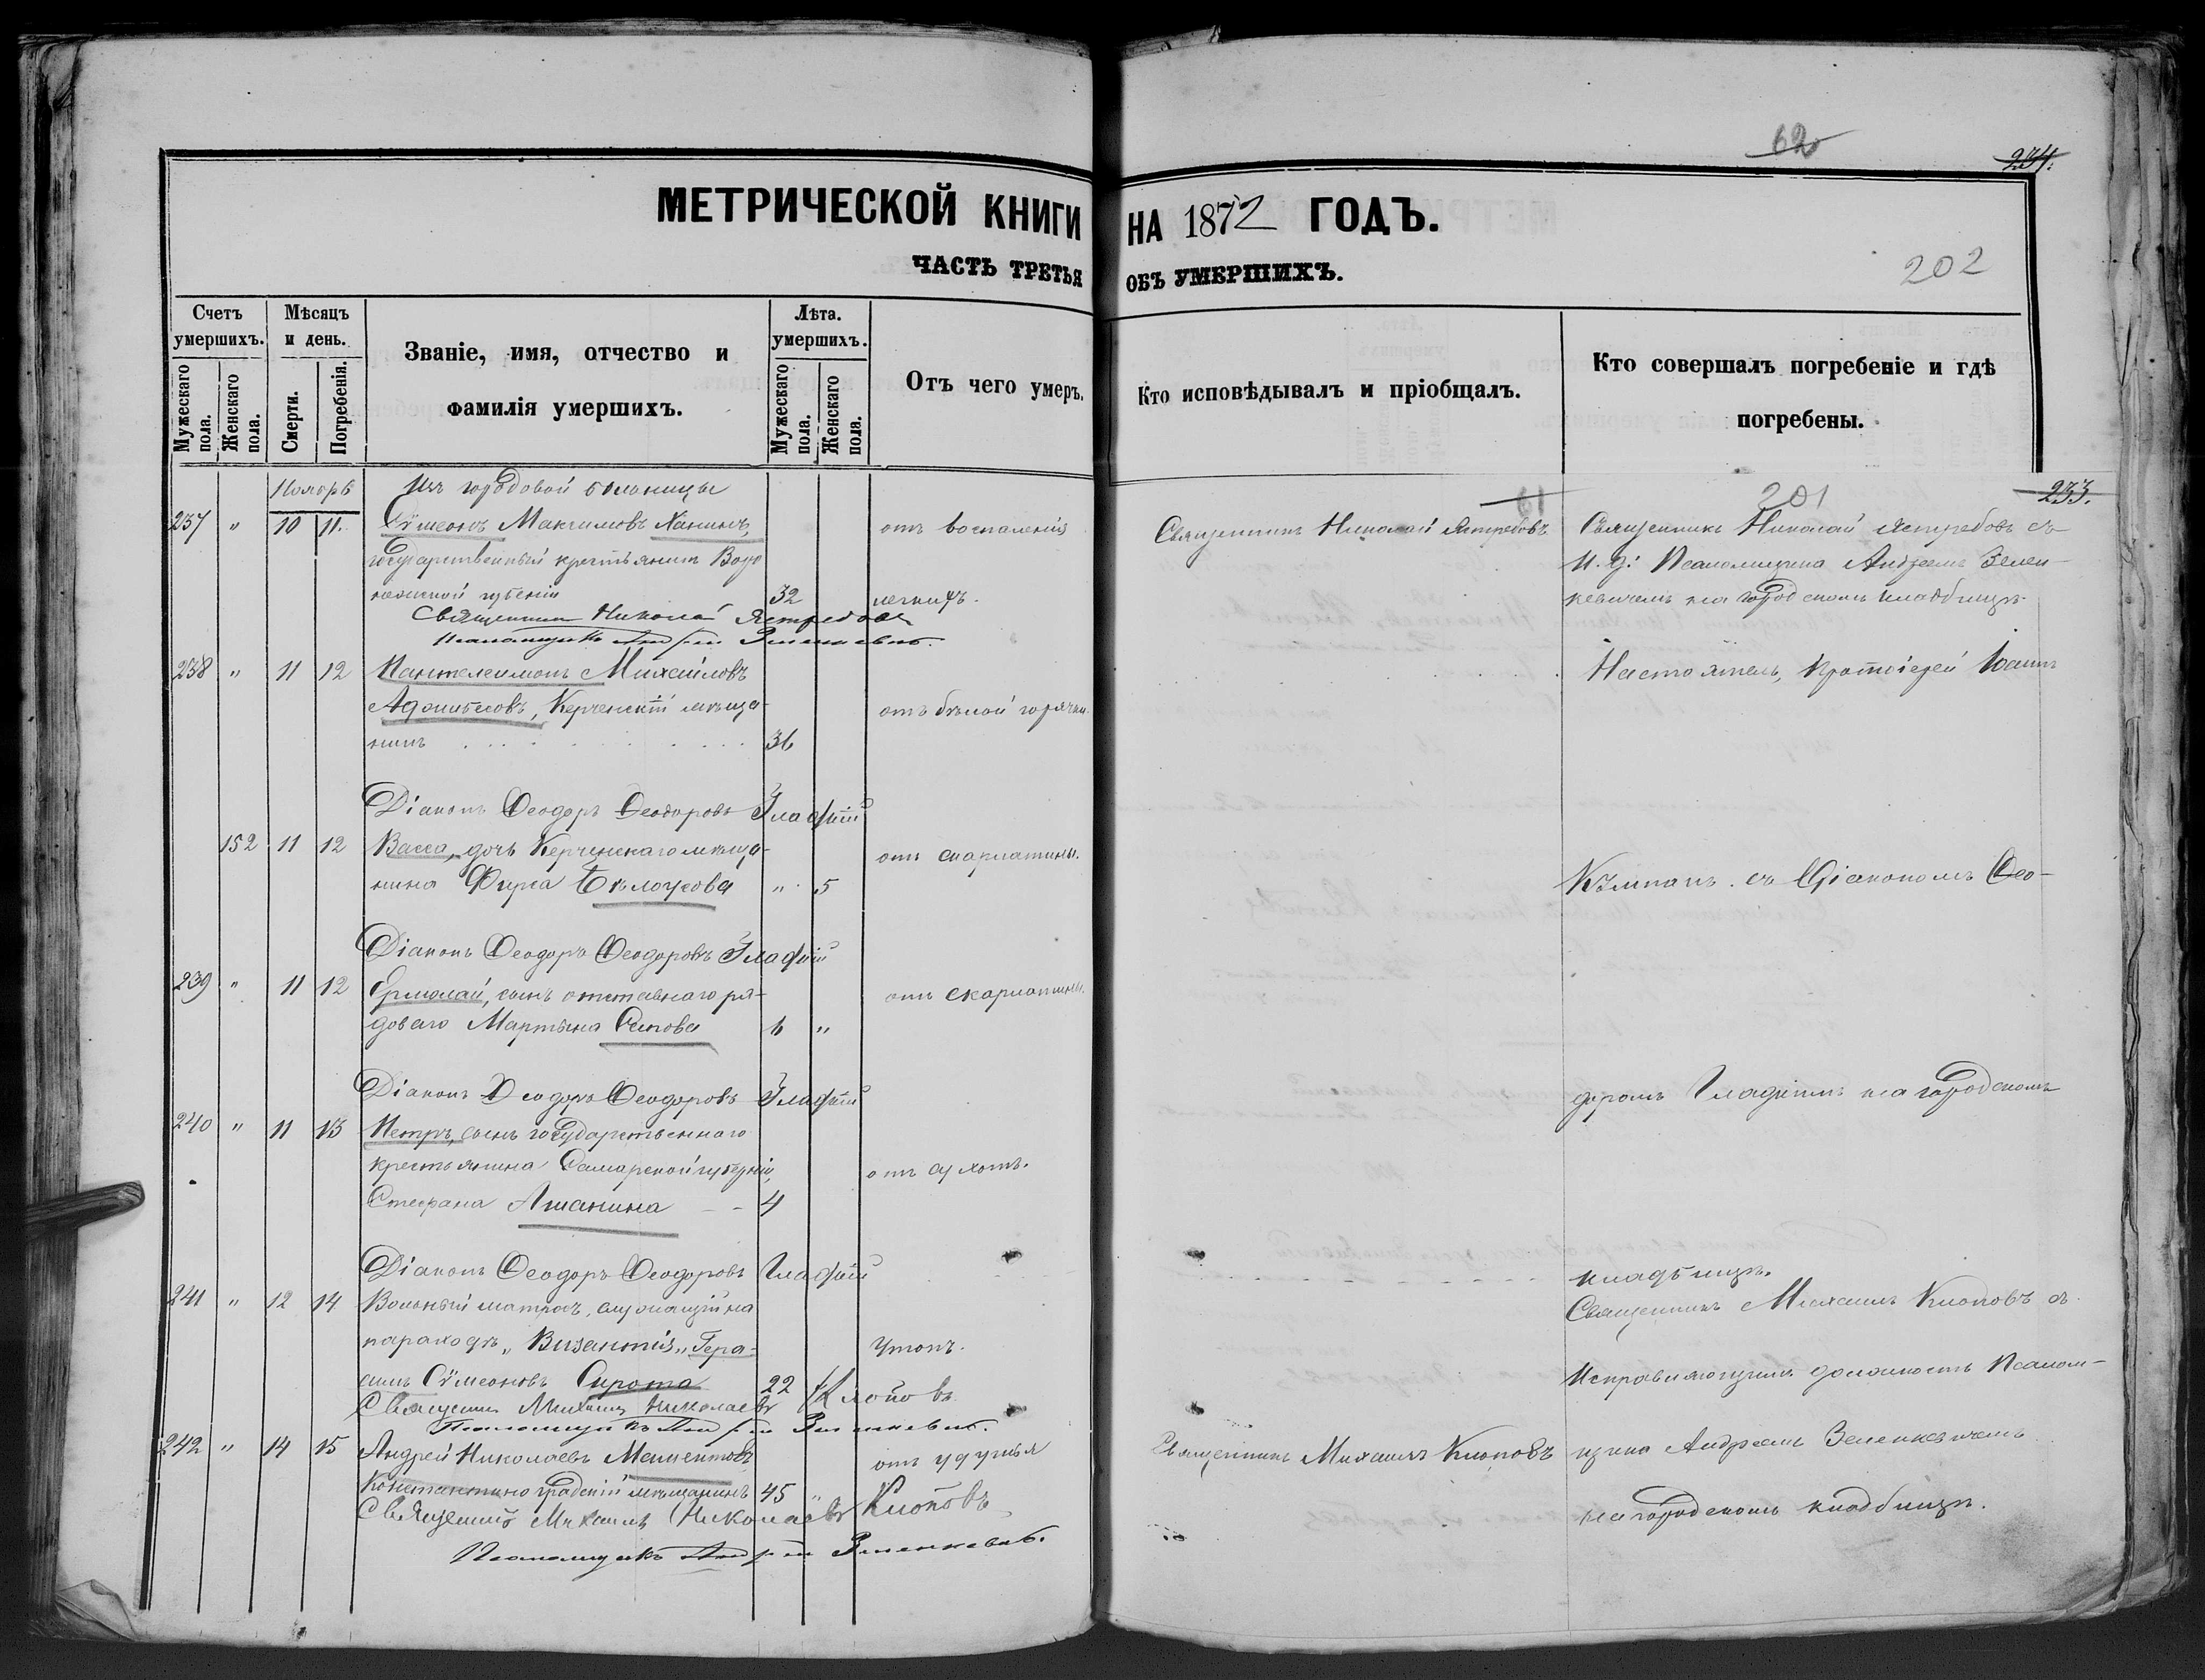 62
234.
МЕТРИЧЕСКОЙ КНИГИ НА 1872 ГОДЪ.
ЧАСТЬ ТРЕТЬЯ ОБЪ УМЕРШИХЪ.
202
Счетъ умершихъ.
Мужескаго пола.
Женскаго пола.
Мѣсяцъ и день.
Смерти.
Погребенія.
Званіе, имя, отчество и
фамилія умершихъ.
Лѣта. умершихъ.
Мужескаго пола.
Женскаго пола.
Отъ чего умеръ.
Кто исповѣдывалъ и пріобщалъ.
Кто совершалъ погребеніе и гдѣ
погребены.
Ноябрь
Изъ городовой больницы
61
201
233.
237 " 10 11 Сѵмеонъ Максимовъ Ханинъ, отъ воспаленія Священникъ Николай Ястребовъ Священникъ Николай Ястребовъ съ
государственный крестьянинъ Воро И. д: Псаломщика Андреемъ Зелен-
нежской губерніи 32 легкихъ. кевичемъ на городскомъ кладбищѣ.
Священникъ Николай Ястребовъ
Псаломщикъ Андрей Зеленкевичъ.
238 " 11 12 Пантелеимонъ Михаиловъ Настоятель, Протоіерей Іоаннъ
Керченскій мѣща- отъ бѣлой горячки.
нинъ 36
Діаконъ Ѳеодоръ Ѳеодоровъ Гладкій
152 11 12 Васса, дочь Керченскаго мѣща- отъ скарлатины.
нина Фирса Бѣлоусова " 5 съ Діакономъ Ѳео-
Діаконъ Ѳеодоръ Ѳеодоровъ Гладкій
239 " 11 12 Ермолай, сынъ отставнаго ря- отъ скарлатины.
доваго Мартына Осипова 6 "
Діаконъ Ѳеодоръ Ѳеодоровъ Гладкій доромъ Гладкимъ на городскомъ
240 " 11 13 Петръ, сынъ государственнаго
крестьянина Самарской губерніи, отъ сухотъ.
Стефана Ашанина 4
Діаконъ Ѳеодоръ Ѳеодоровъ Гладкій кладбищѣ.
241 " 12 14 Вольный матросъ, служащій на Священникъ Михаилъ Клоповъ съ
пароходѣ „Византія„ Гера- Утонъ.
симъ Сѵмеоновъ Сирота 22 Исправляющимъ должность Псалом-
Священникъ Михаилъ Николаевъ Клоповъ
Псаломщикъ Андрей Зеленкевичъ.
242 " 14 15 Андрей Николаевъ отъ удушья Священникъ Михаилъ Клоповъ щика Андреемъ Зеленкевичемъ
Константиноградскій мѣщанинъ 45 " на городскомъ кладбищѣ.
Священникъ Михаилъ Николаевъ Клоповъ
Псаломщикъ Андрей Зеленкевичъ.